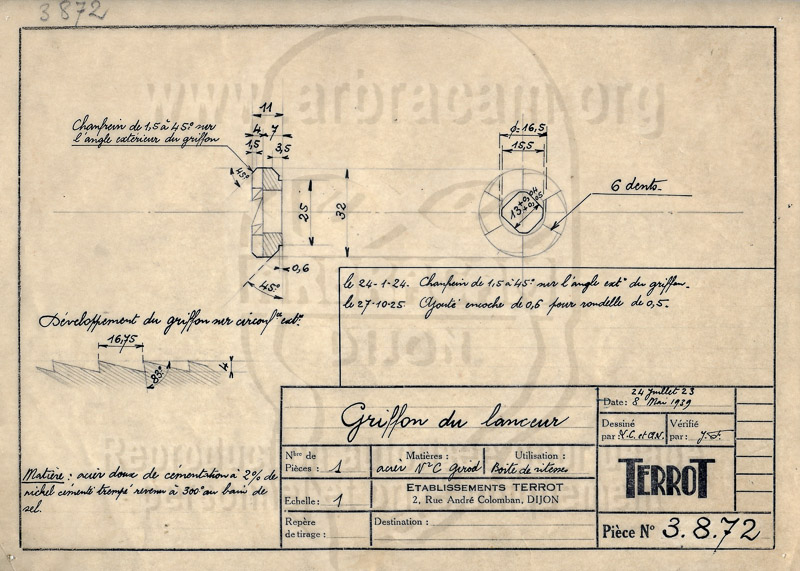 3872
www.arbracam.org
11
4 7
1,5 3,5
Chanfrein de 1,5 à 45° sur
l'angle extérieur du griffon
45°
25
32
0,6
45°
ϕ = 16,5
15,5
13 +0,04
+0,05
6 dents.
le 24-1-24. Chanfrein de 1,5 à 45° sur l'angle extr du griffon.
le 27-10-25 Ajouté encoche de 0,6 pour rondelle de 0,5.
Développement du griffon sur circonfce extre
16,75
83°
4
Matière : acier doux de cémentation à 2% de
nickel cémenté trempé revenu à 300° au bain de
sel.
Griffon du lanceur
Nbre de
Pièces : 1
Matières :
acier N2C Girod
Utilisation :
Boîte de vitesses
Echelle : 1
ETABLISSEMENTS TERROT
2, Rue André Colomban, DIJON
Repère
de tirage :
Destination :
24 Juillet 23
Date : 8 Mai 1939
Dessiné
par :
Vérifié
par :
TERROT
Pièce No 3.8.72